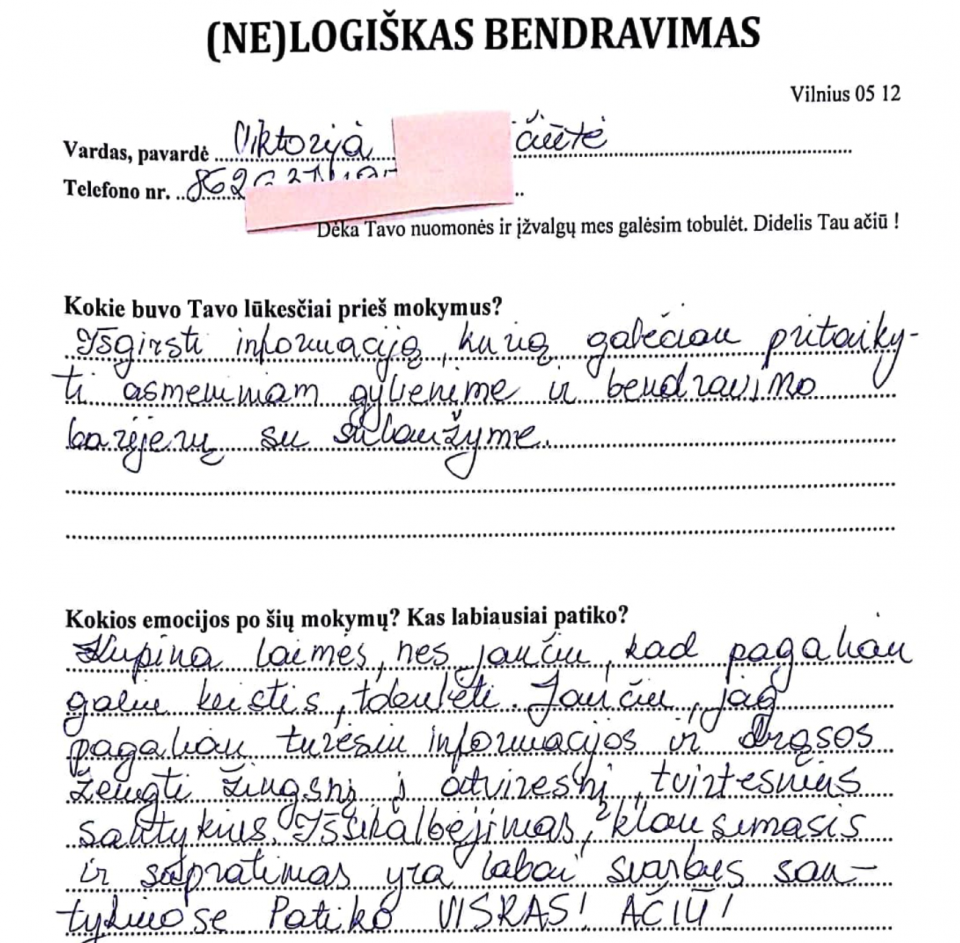 (NE)LOGIŠKAS BENDRAVIMAS
Vilnius 05 12
Vardas, pavardė Viktorija čiūtė
Telefono nr. 862
Dėka Tavo nuomonės ir įžvalgų mes galėsim tobulėt. Didelis Tau ačiū !
Kokie buvo Tavo lūkesčiai prieš mokymus?
Išgirsti informaciją, kurią galėčiau pritaiky-
ti asmeniniam gyvenime ir bendravimo
barjerų su sulaužyme.
Kokios emocijos po šių mokymų? Kas labiausiai patiko?
Kupina laimės, nes jaučiu, kad pagaliau
galiu keistis, tobulėti. Jaučiu, jog
pagaliau turėsiu informacijos ir drąsos
žengti žingsnį į atviresnį, tvirtesnius
santykius. Išsikalbėjimas, klausimasis
ir supratimas yra labai svarbus san-
tykiuose Patiko VISKAS! AČIŪ!